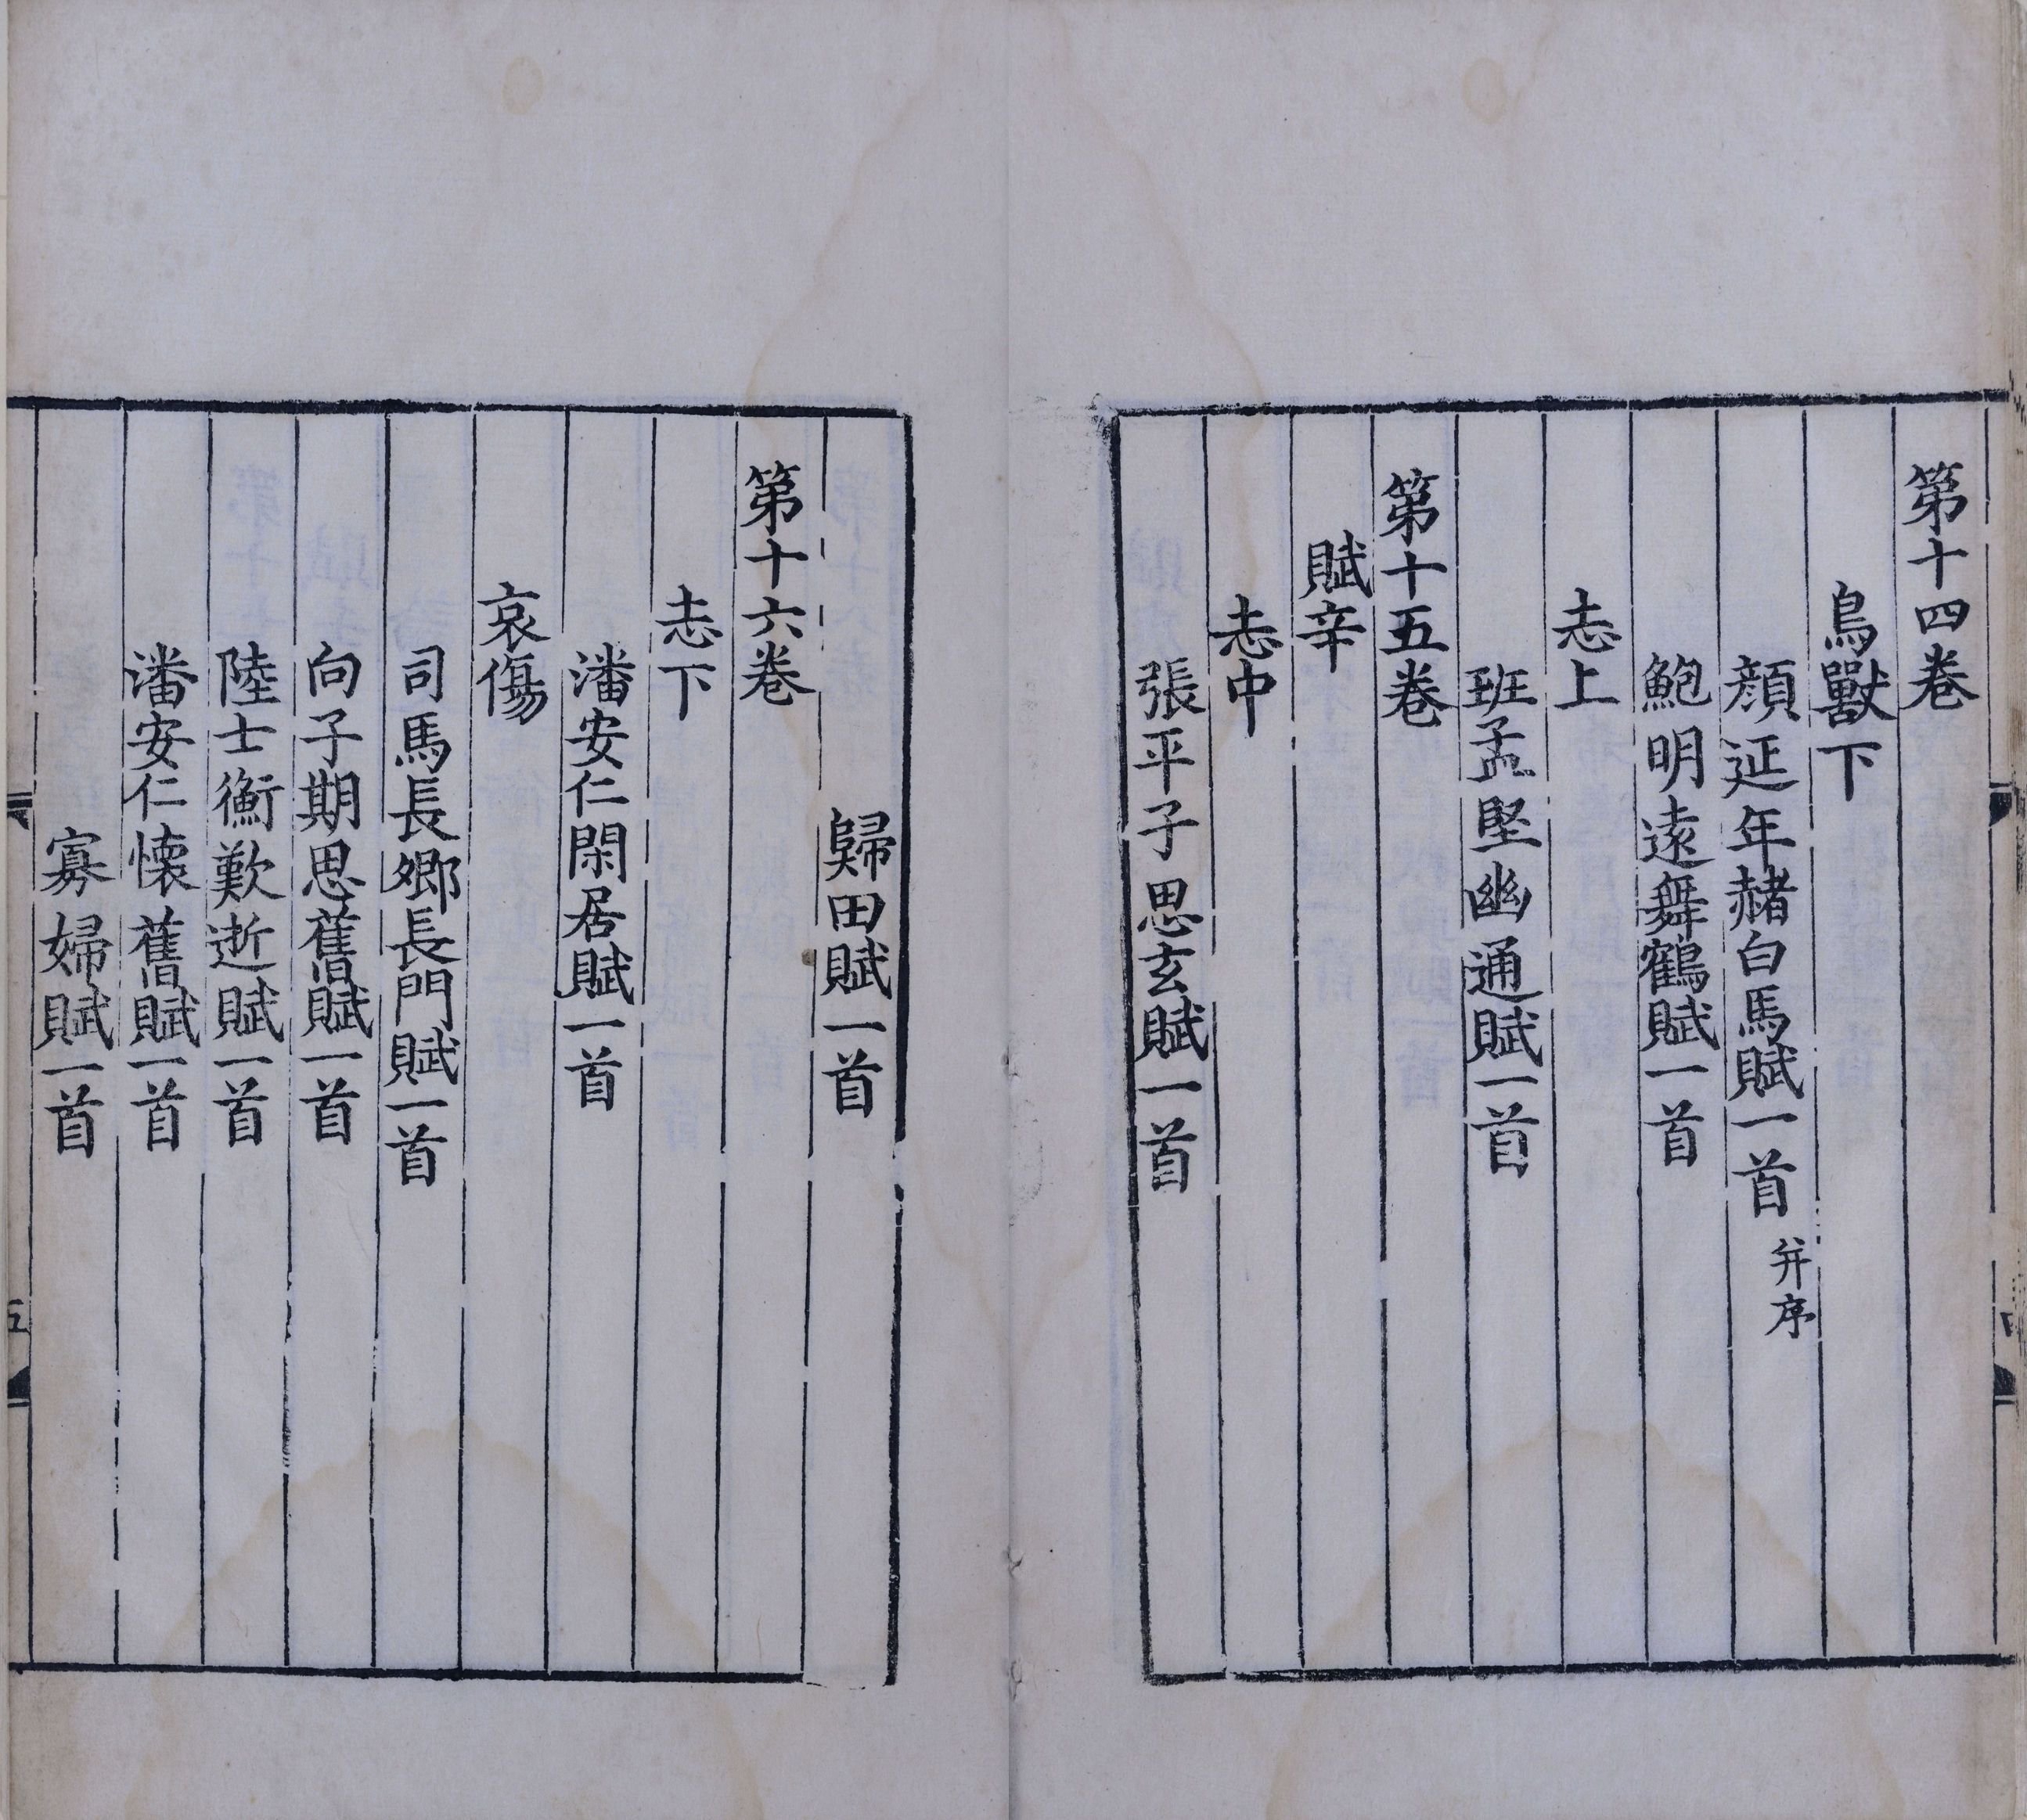 第十四卷
鳥獸下
顔延年赭白馬賦一首 并序
鮑明遠舞鶴賦一首
志上
班孟堅幽通賦一首
第十五卷
賦辛
志中
張平子思玄賦一首
歸田賦一首
第十六卷
志下
潘安仁閑居賦一首
哀傷
司馬長卿長門賦一首
向子期思舊賦一首
陸士衡歎逝賦一首
潘安仁懷舊賦一首
寡婦賦一首
五